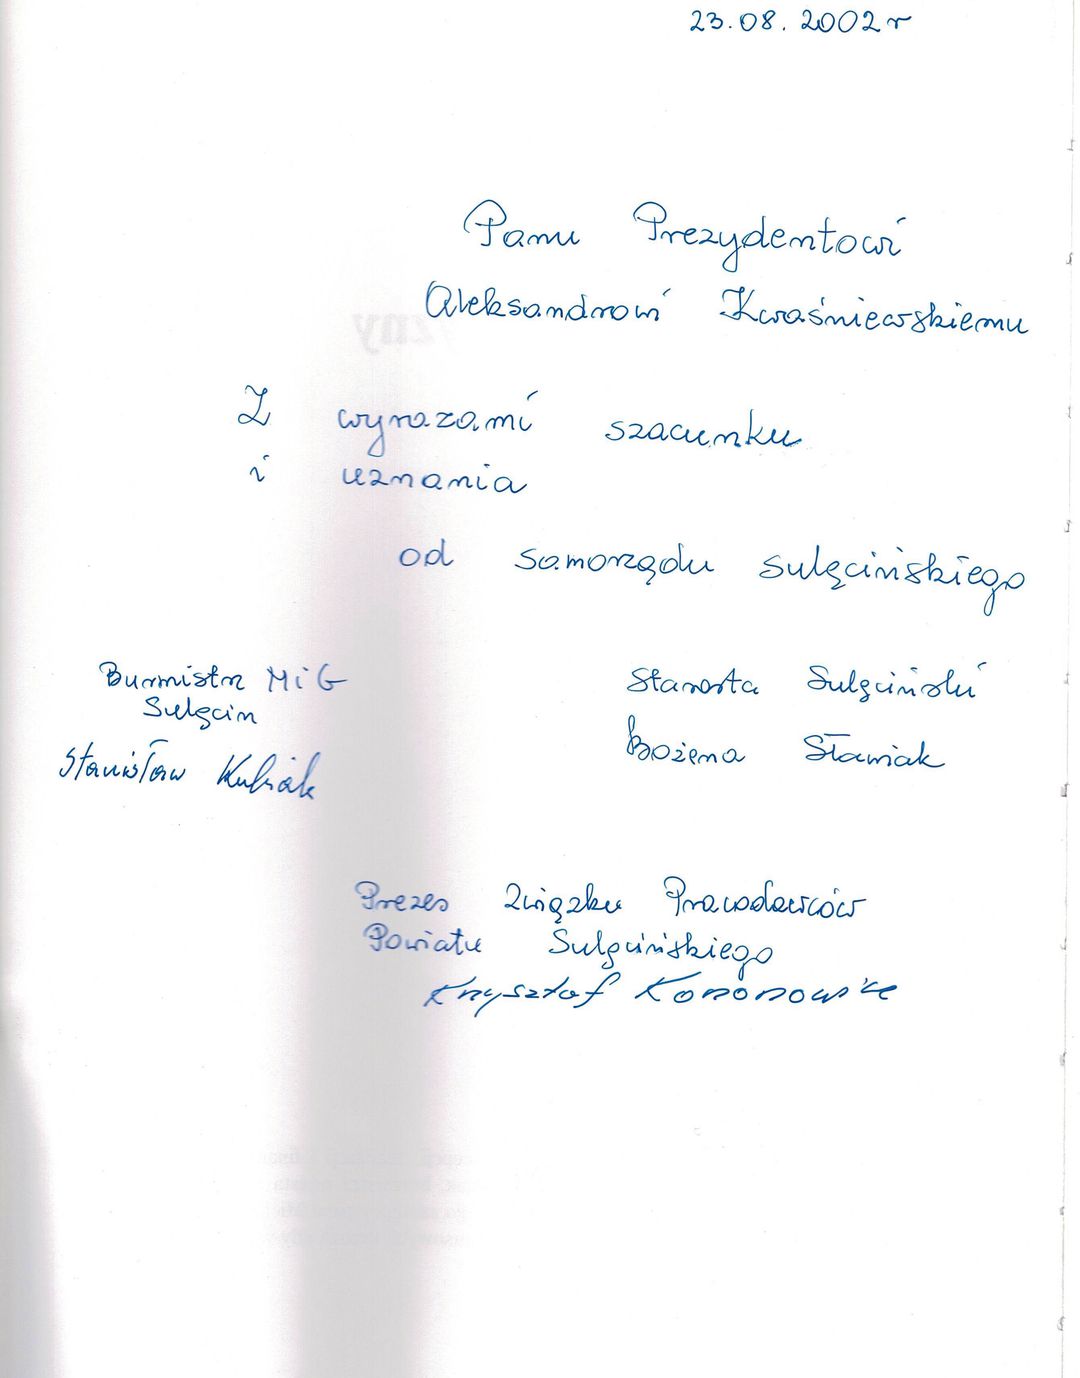 23.08.2002 r
Panu Prezydentowi
Aleksandrowi Kwaśniewskiemu
Z wyrazami szacunku
i uznania
od samorządu sulęcińskiego
Burmistrz MiG
Sulęcin
Stanisław Kubiak
Starosta Sulęciński
Bożena Sławiak
Prezes Związku Pracodawców
Powiatu Sulęcińskiego
Krzysztof Kononowicz